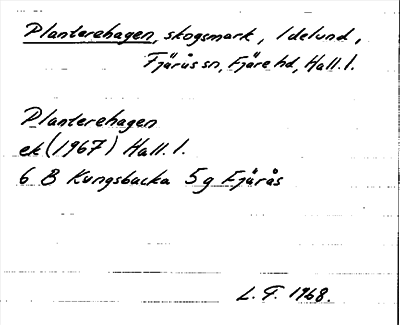 Planterehagen, skogsmark, Idelund,
Fjärås sn, Fjäre hd, Hall. l.
Planterehagen
ek (1967) Hall. l.
6 B Kungsbacka 5g Fjärås
L. F. 1968.